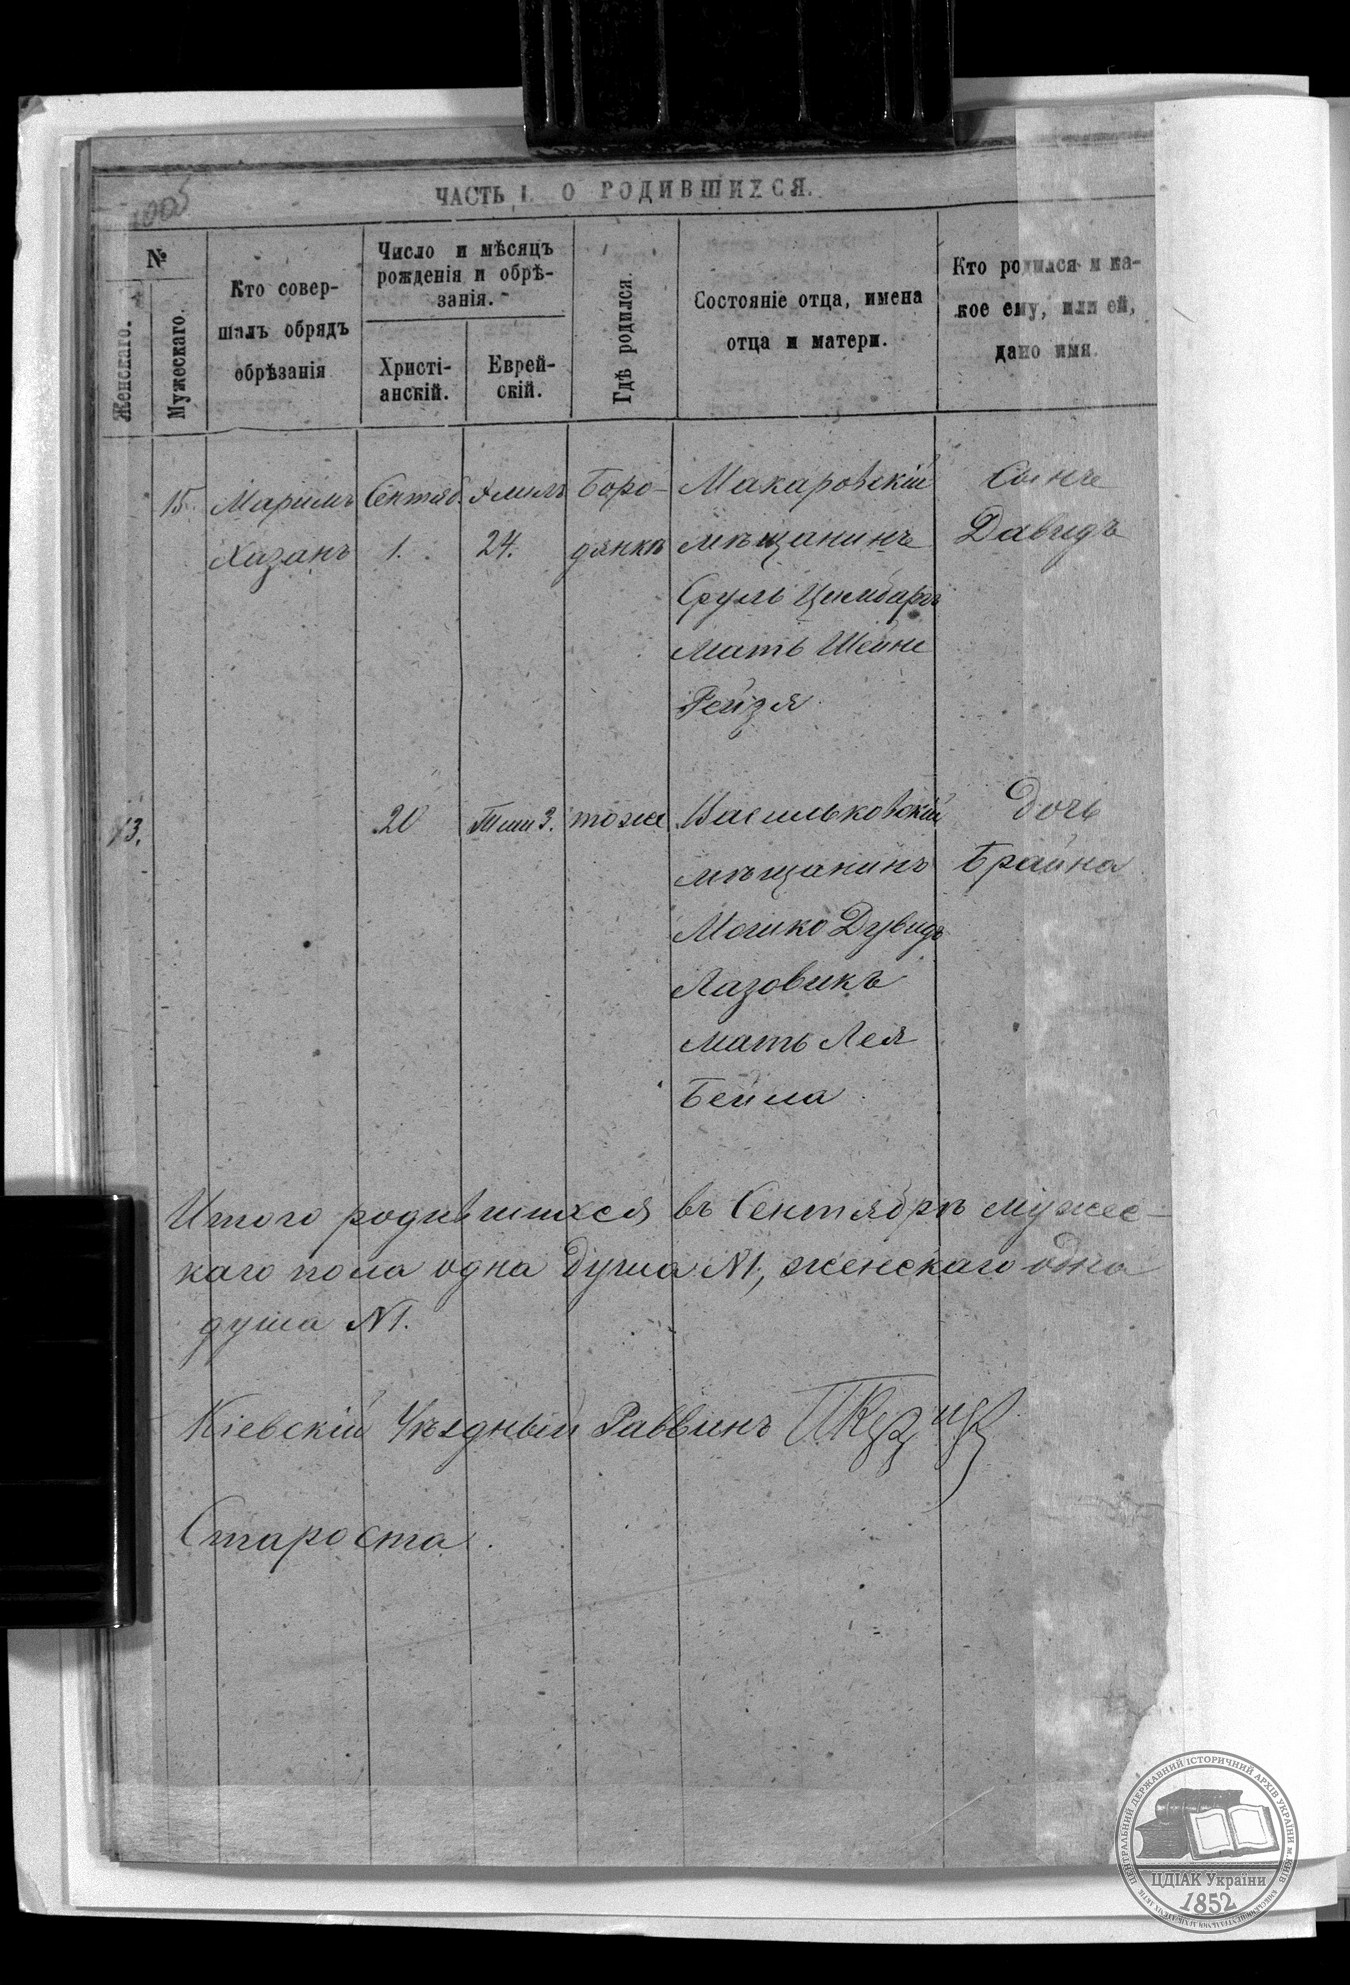 1005
ЧАСТЬ I. О РОДИВШИХСЯ.
№
Женскаго.
Мужескаго.
Кто совер-
шалъ обрядъ
обрѣзанія
Число и мѣсяцъ
рожденія и обрѣ-
занія.
Христі-
анскій.
Еврей-
скій.
Гдѣ родился.
Состояніе отца, имена
отца и матери.
Кто родился и ка-
кое ему, или ей,
дано имя.
15. Маримъ Сентяб. Элилъ Боро- Макаровскій Сынъ
Хазанъ 1. 24. дянкѣ мѣщанинъ Давидъ
Сруль Цимбаръ
мать Шейне
Рейзя
13. 20 Тиш 3. тоже Васильковскій дочь
мѣщанинъ Брайна
Мошко Дувидъ
Лазовикъ
мать Лея
Бейла
Итого родившихся въ Сентябрѣ мужес-
каго пола одна душа №1, женскаго одна
душа №1.
Кіевскій Уѣздный Раввинъ
Староста
ЦЕНТРАЛЬНИЙ ДЕРЖАВНИЙ ІСТОРИЧНИЙ АРХІВ УКРАЇНИ м. КИЇВ
ЦДІАК України
1852